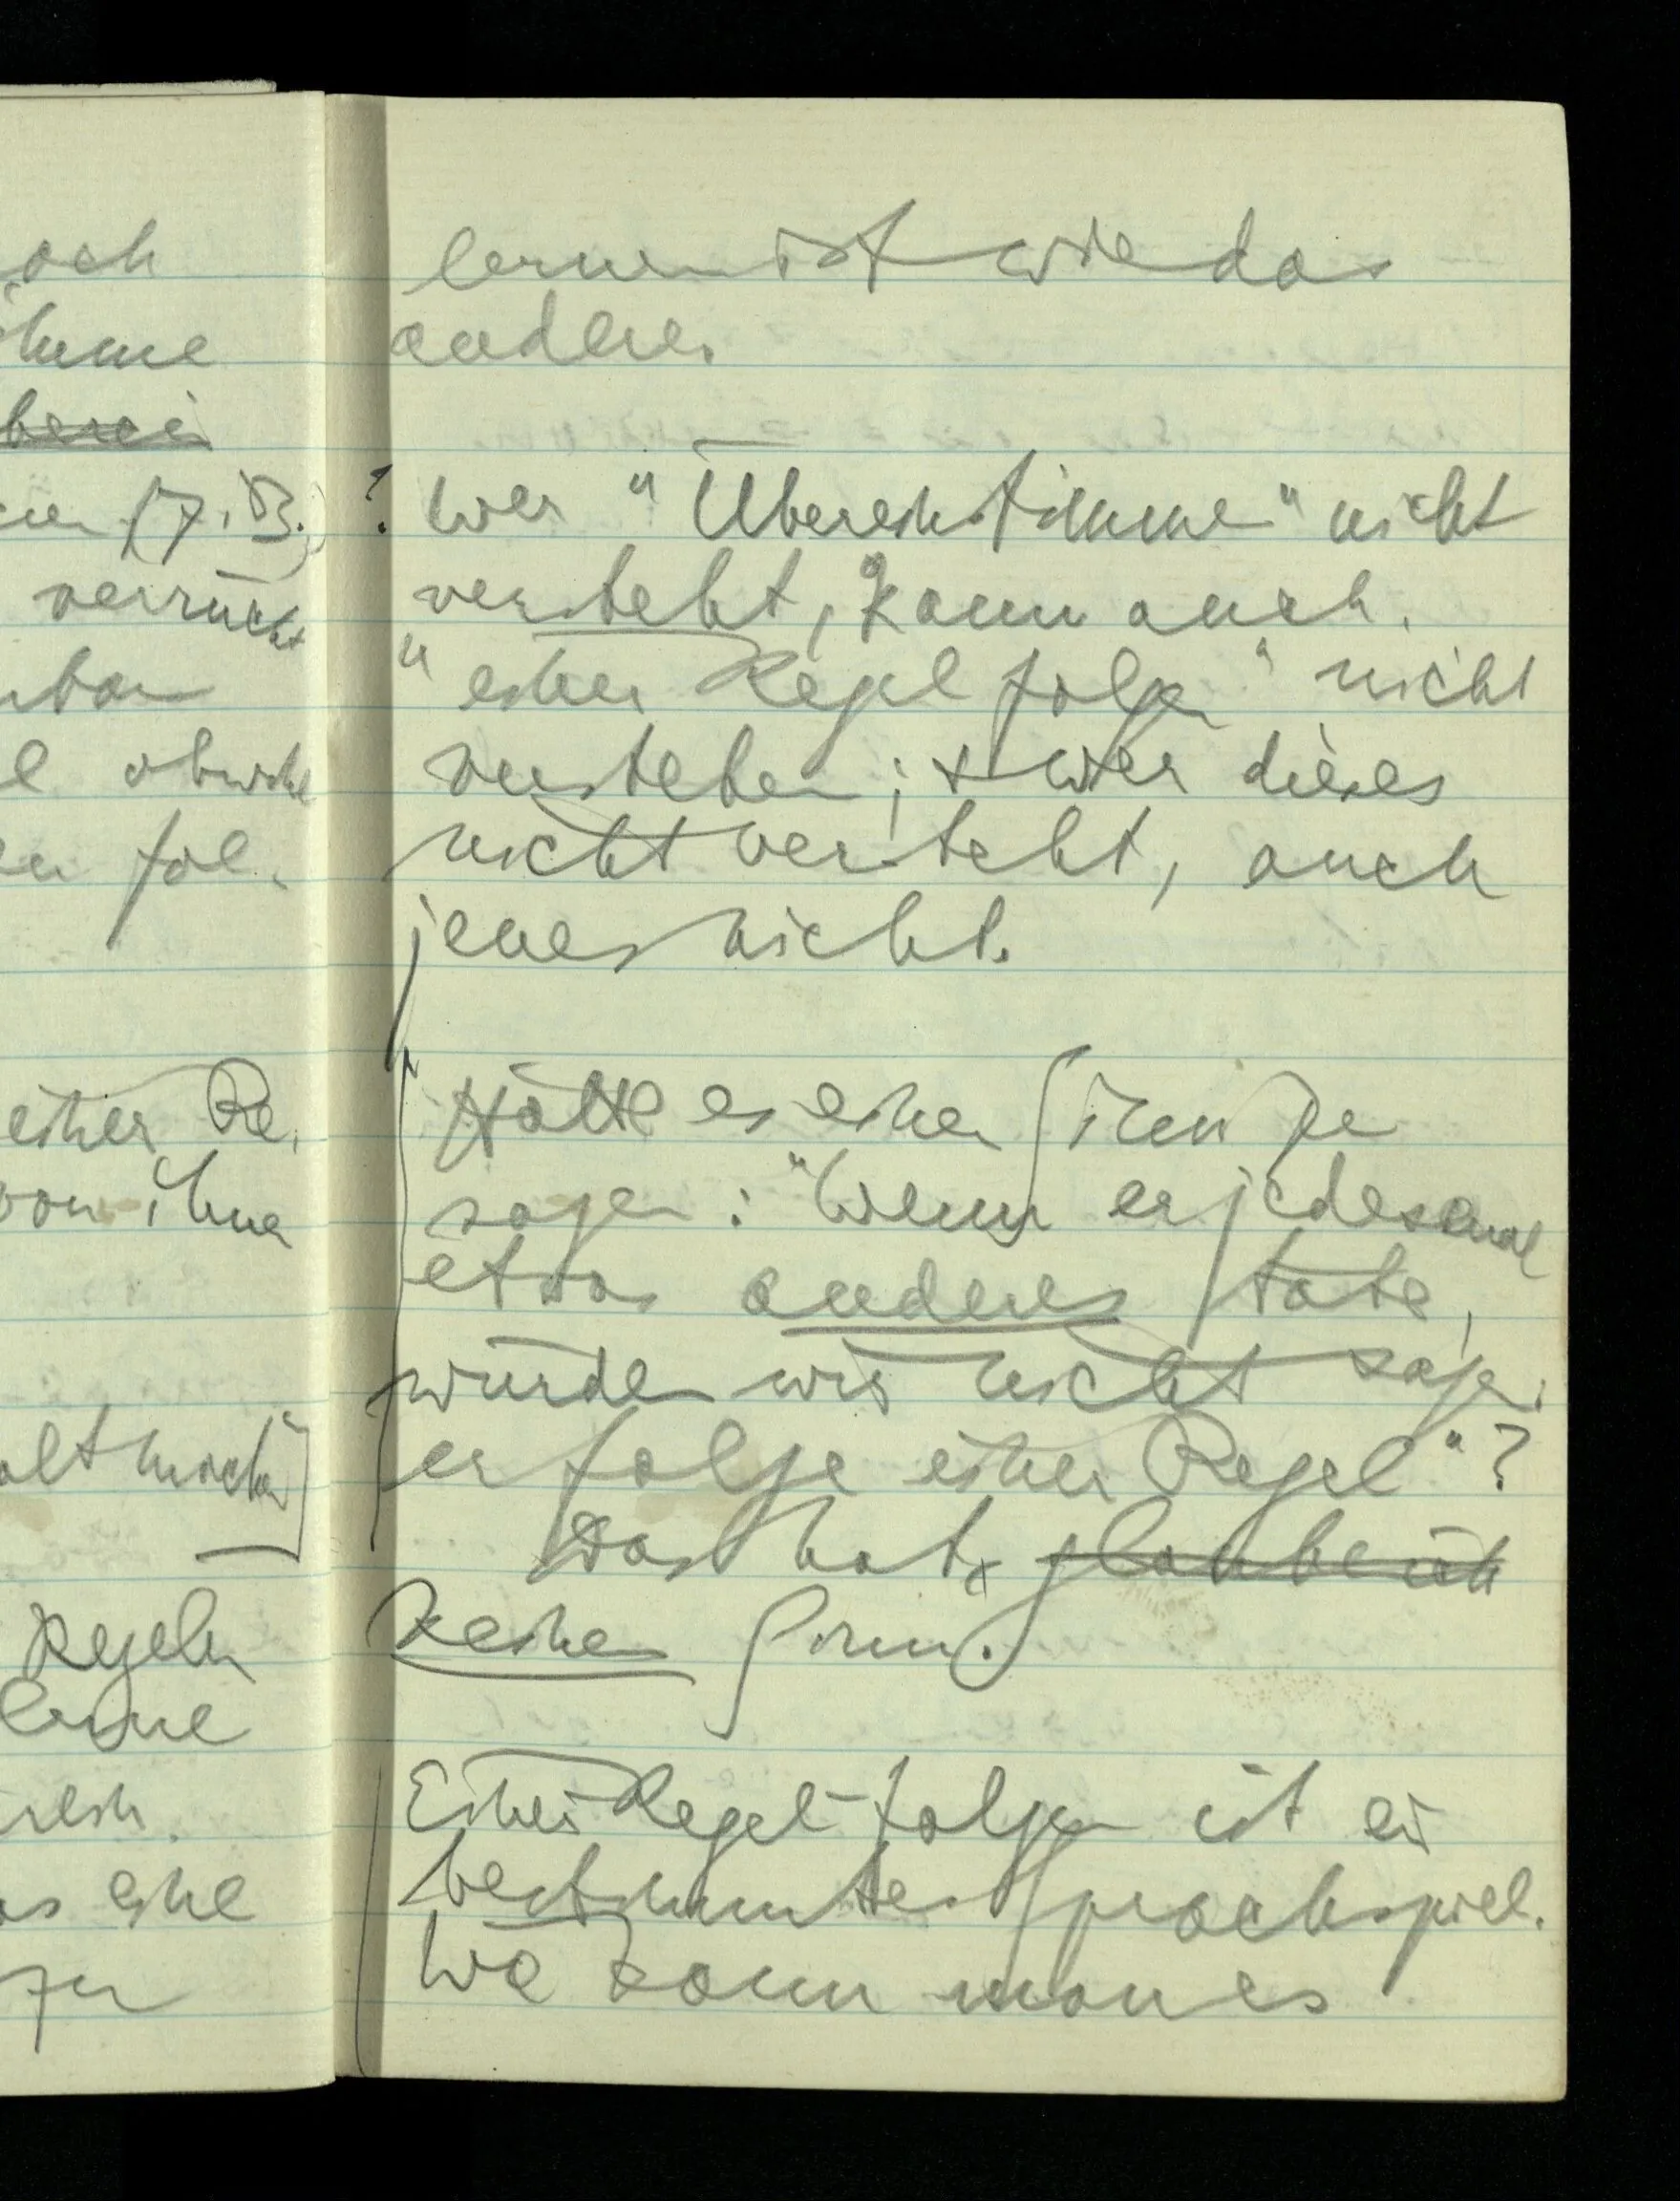 lernen ist wie das
andere.
? Wer "Übereinstimme" nicht
versteht, kann auch
"einer Regel folgen" nicht
verstehen; & wer dieses
nicht versteht, auch
jenes nicht.
Hätte es einen Sinn zu
sagen: "Wenn er jedesmal
etwas anderes täte,
würden wir nicht sagen:
er folge einer Regel"?
Das hat, glaube ich
keinen Sinn.
Einer Regel folgen ist ein
bestimmtes Sprachspiel.
Wie kann man es
och
berei
(z.B.
verrückt
l obwohl
en fol-
einer Re-
von ihne
Regeln
lerne
ine
zu